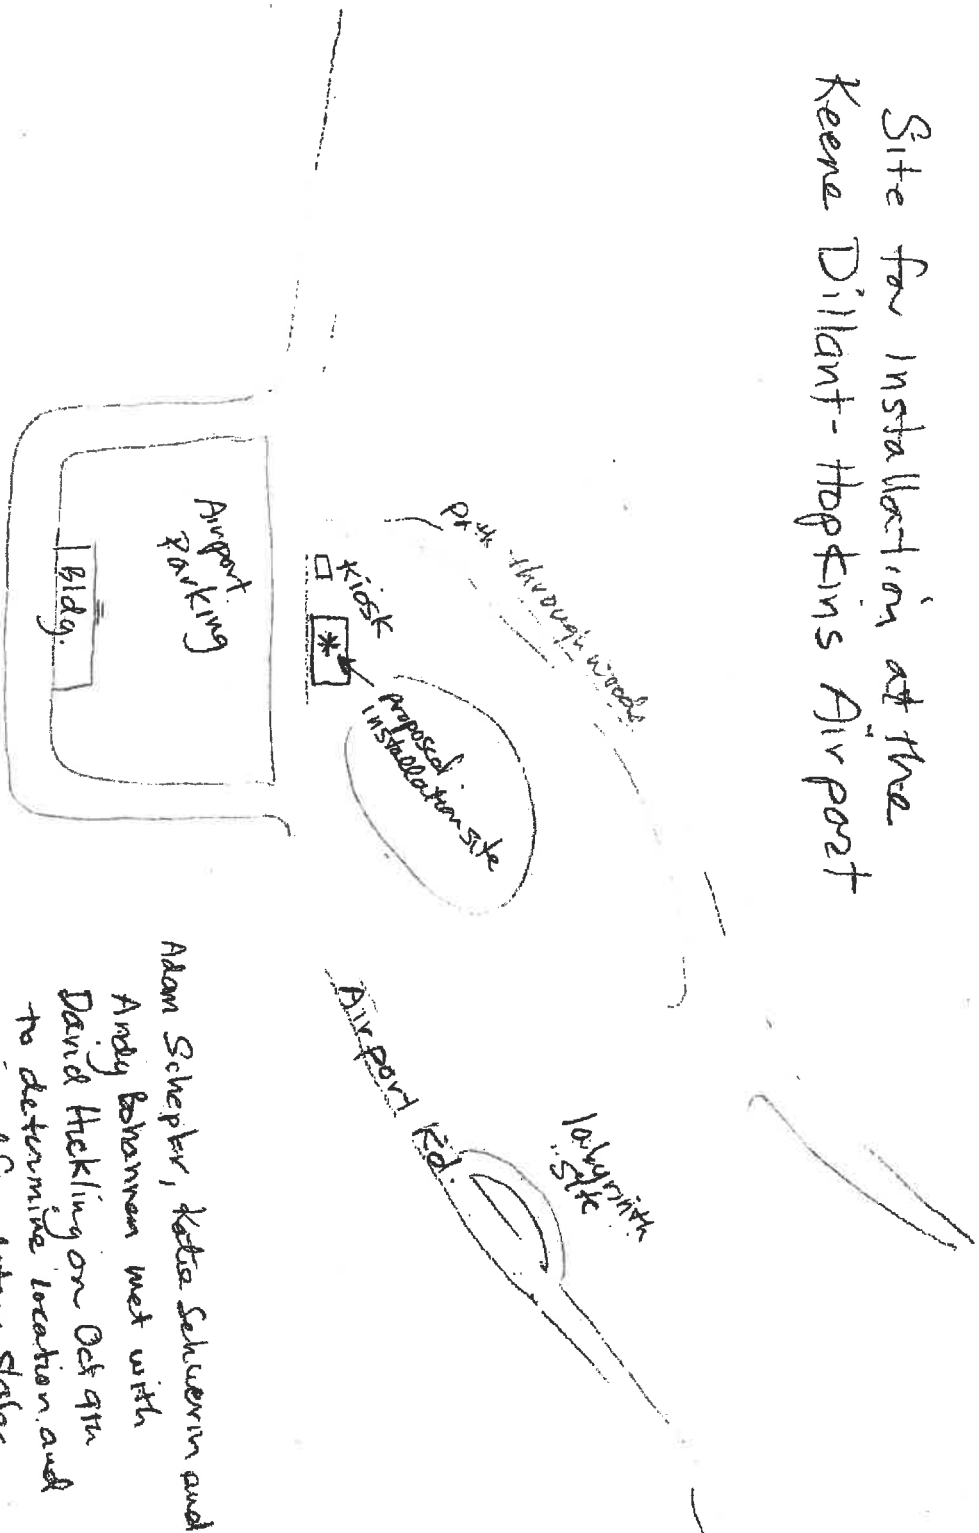 Site for Installation at the
Keene Dillant-Hopkins Airport
Path through woods
Kiosk
*
proposed
installation site
Airport
Parking
Bldg.
labyrinth
site
Airport Rd.
Adam Schepker, Katie Schwerin and
Andy Bohannon met with
David Hickling on Oct 9th
to determine location and